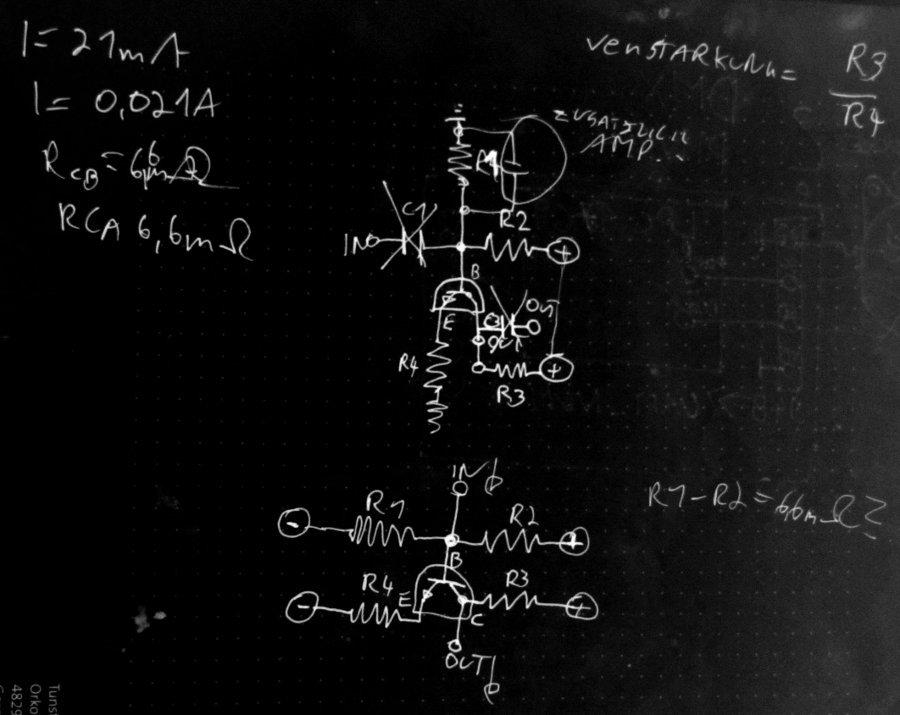 I = 21mA
I = 0,021A
RCA 6,6mΩ
VERSTÄRKUNG = R3
R4
AMP..
R1
C1
R2
IN
+
B
E
OUT
R4
+
R3
IN
R1 - R2 = 6,6mΩ?
- R1 R2 +
B
- R4 E R3 +
C
OUT
Tuns
Orko
4829